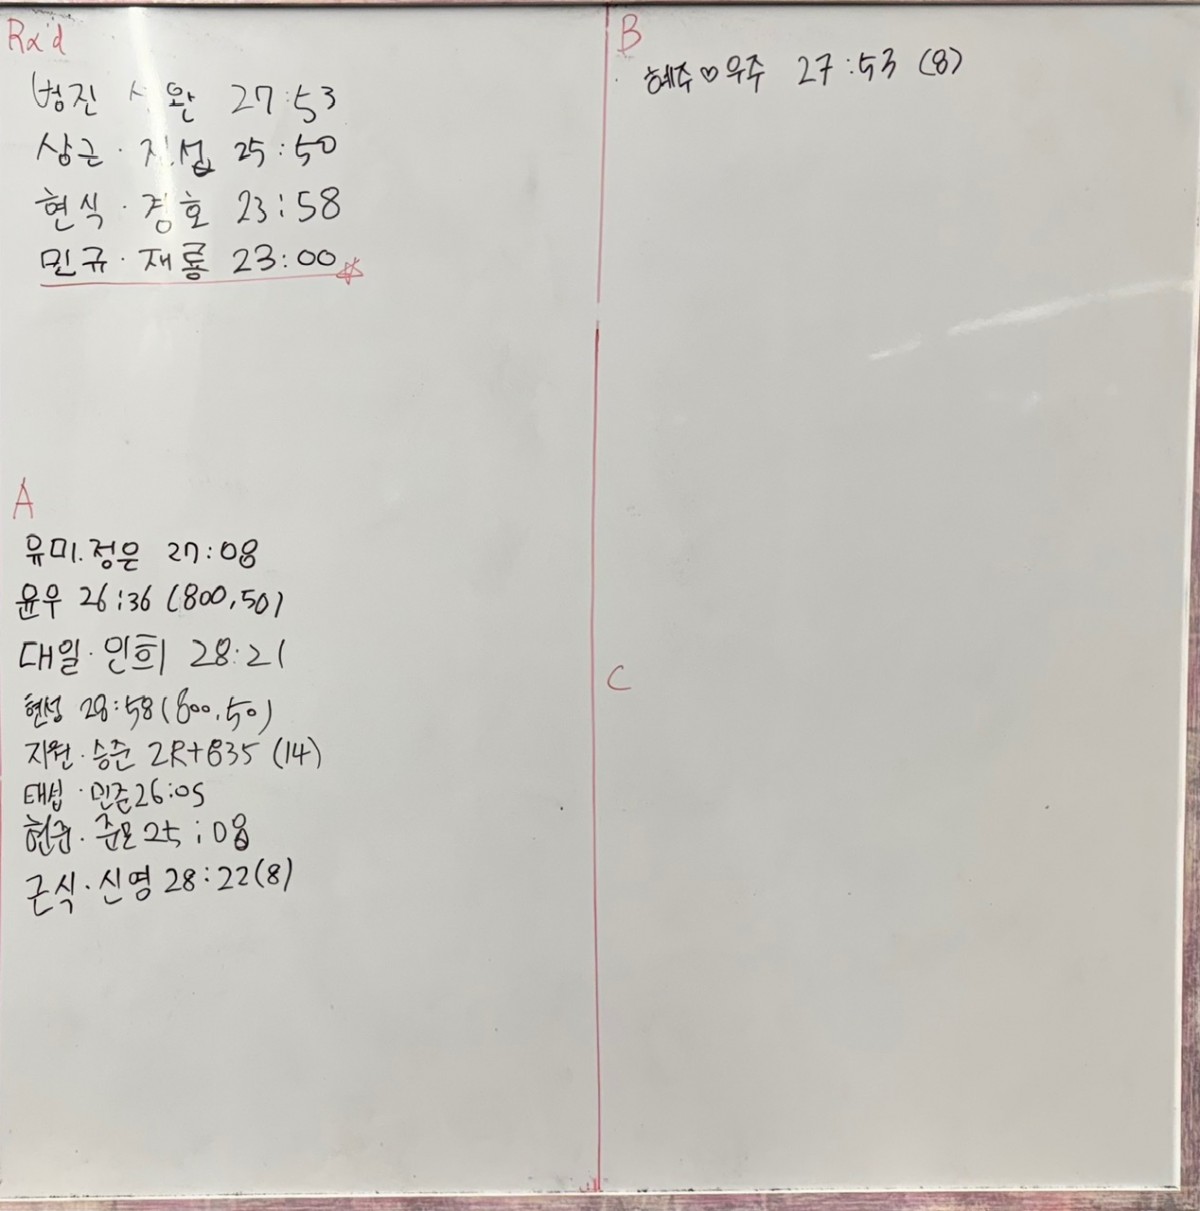 Rx'd
범진 완 27:53
상근 · 진섭 25:50
현식 · 경호 23:58
민규 · 재룡 23:00
A
유미. 정은 27:08
윤우 26:36 (800,50)
대일 · 민희 28:21
현성 28:58 (800,50)
지원 · 승준 2R+835 (14)
태섭 · 민준 26:05
현준 · 준모 25:08
근식 · 신영 28:22 (8)
B
혜주 ♡ 우주 27:53 (8)
C